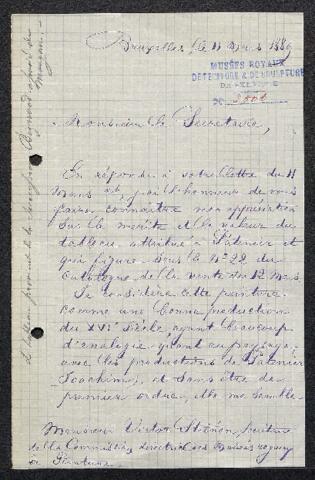 Bruxelles, le 11 Mars 1889
MUSÉES ROYAUX
DE PEINTURE & DE SCULPTURE
DE BELGIQUE
No
Monsieur le Secrétaire,
En réponse à votre lettre du 11
Mars ct, j'ai l'honneur de vous
faire connaître mon appréciation
sur le mérite et la valeur du
tableau attribué à Patenier et
qui figure sous le No 22 du
Catalogue de la vente du 12 Mars.
Je considère cette peinture
comme une bonne production
du XVIe Siècle ayant beaucoup
d'analogie quant au paysage,
avec les productions de Patenier
Joachim, et sans être de
premier ordre, elle me semble
Monsieur Victor Stiénon, secrétaire
de la Commission directrice des Musées royaux
de Peinture